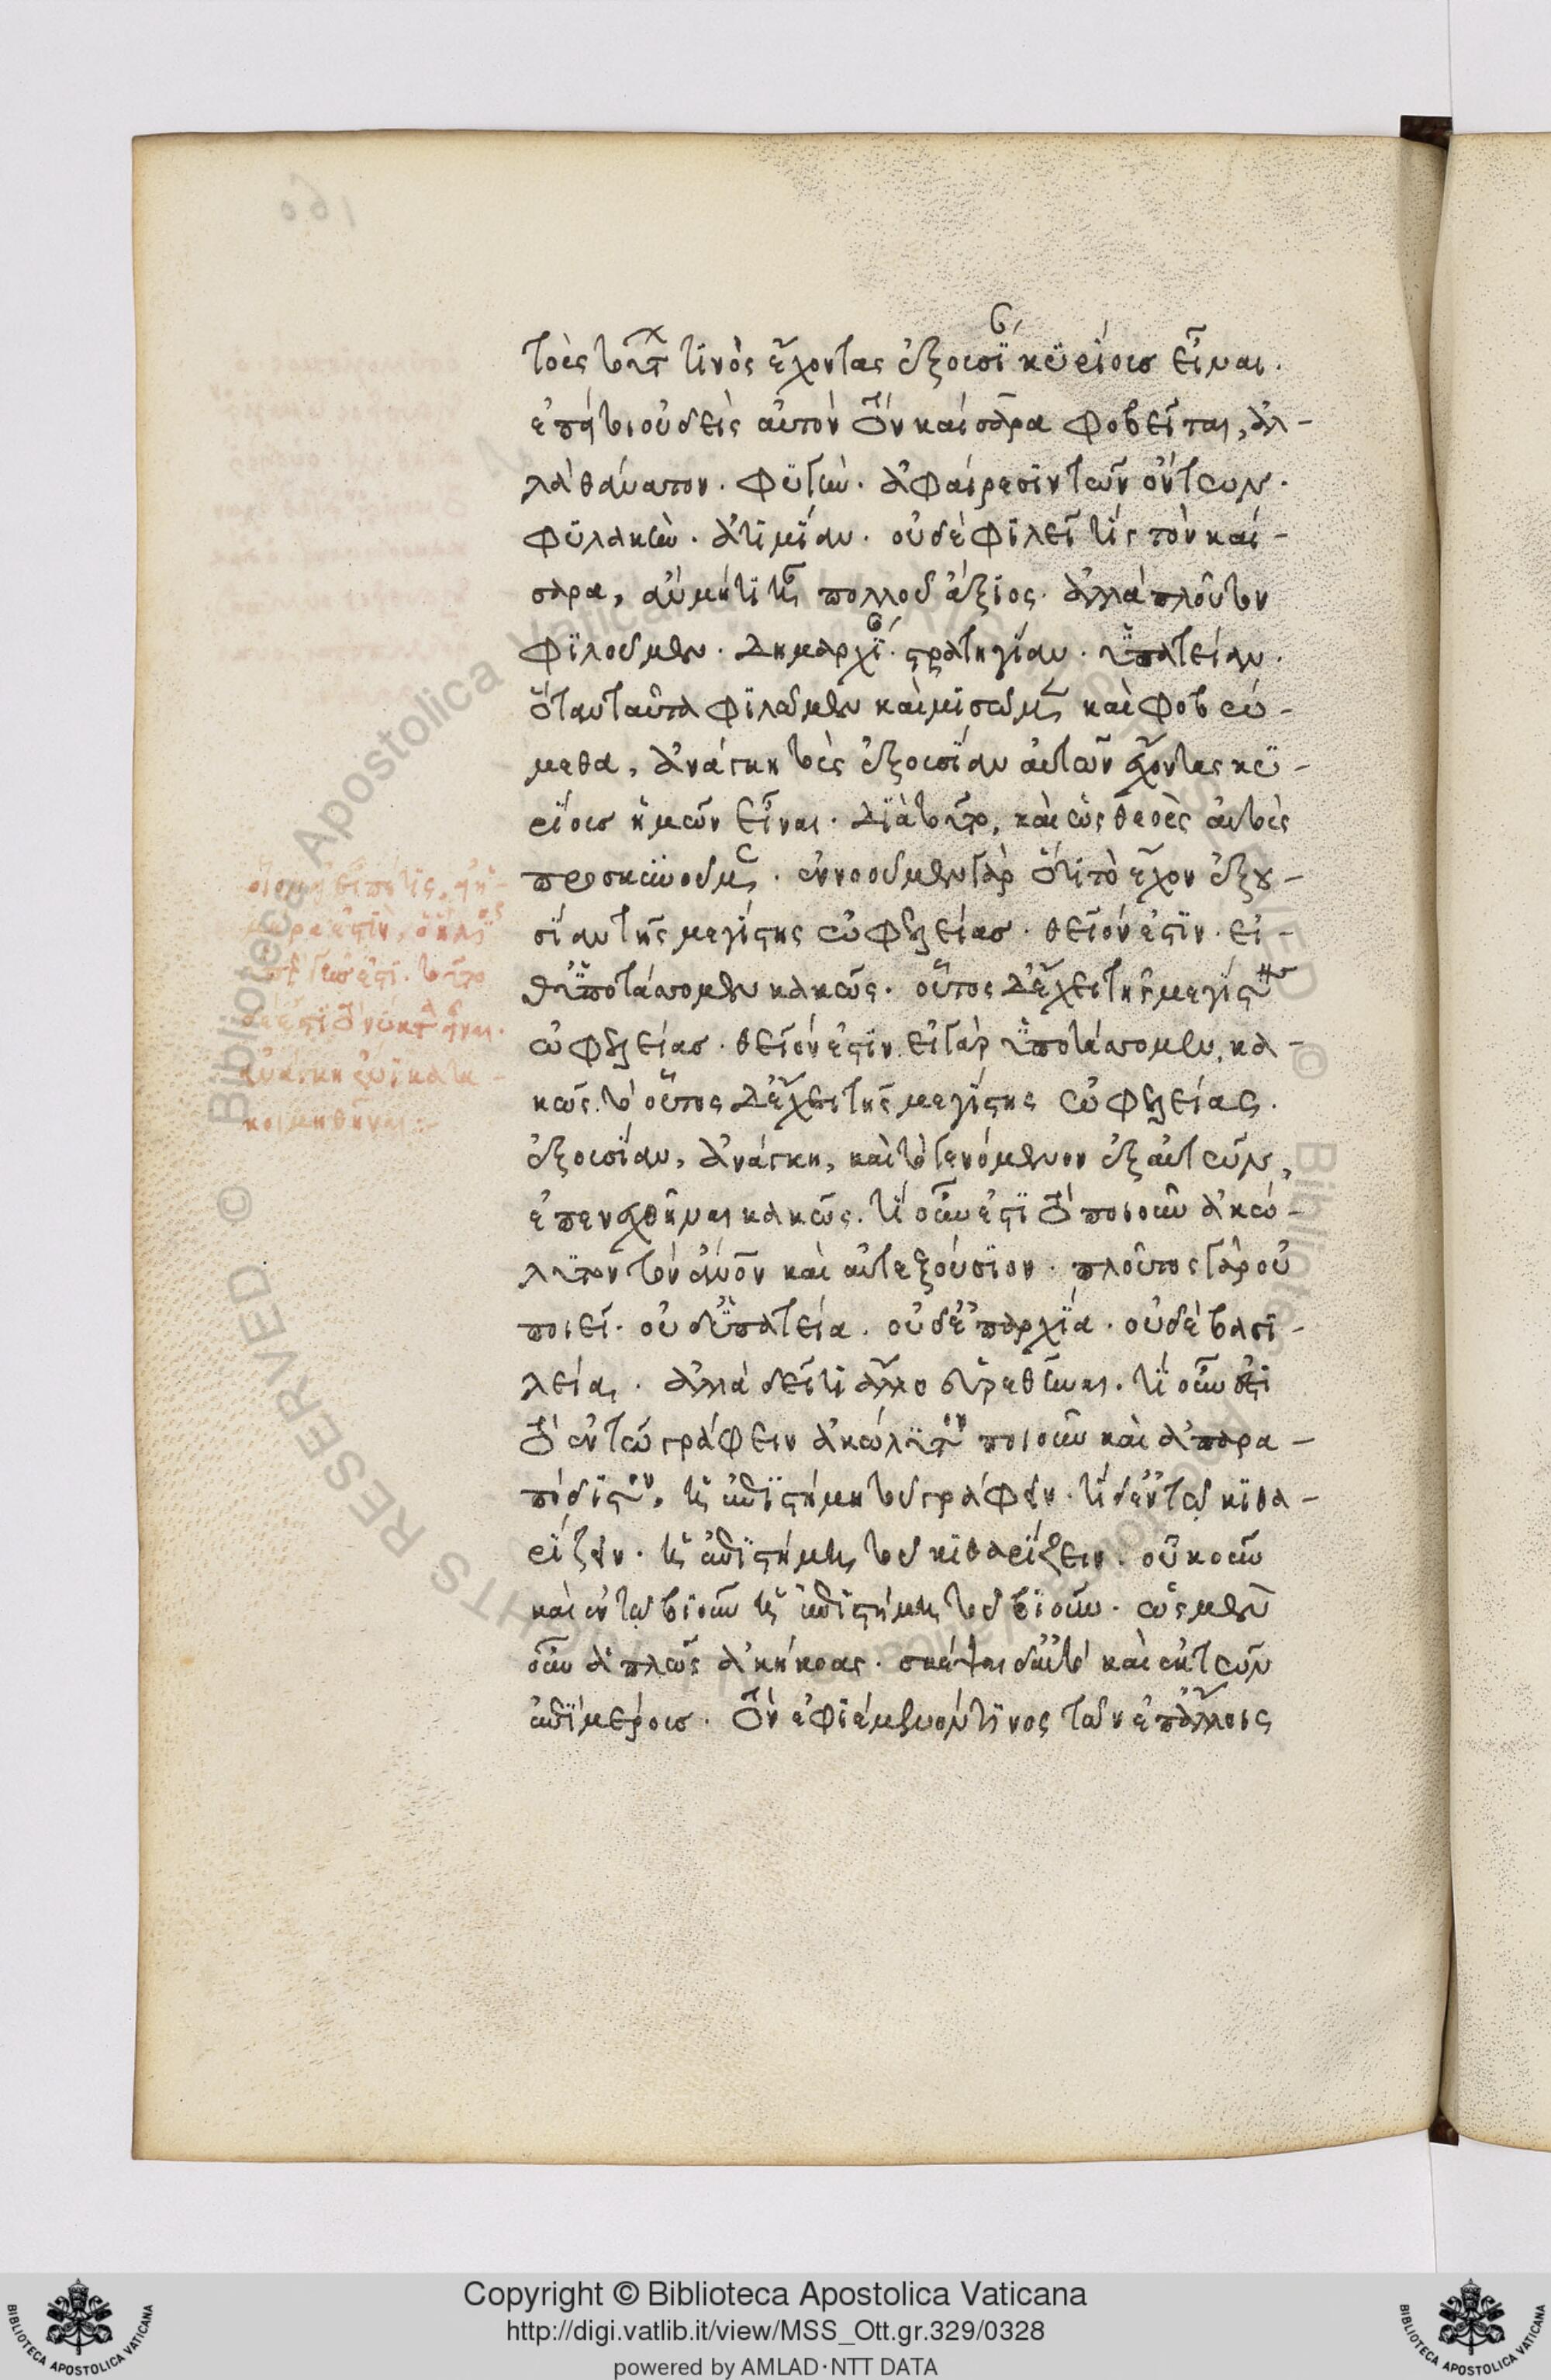 τοὺς τούτων τινὸς ἔχοντας ἐξουσίαν κυρίους εἶναι.
ἐπεί τοι οὐδεὶς αὐτὸν τὸν καίσαρα φοβεῖται, ἀλ-
λὰ θάνατον. φυγὴν. ἀφαίρεσιν τῶν ὄντων.
φυλακὴν. ἀτιμίαν. οὐδὲ φιλεῖ τίς τὸν καί-
σαρα, ἂν μή τι ἦ πολλοῦ ἄξιος. ἀλλὰ πλοῦτον
φιλοῦμεν. δημαρχίαν. στρατηγίαν. ὑπατείαν.
ὅταν ταῦτα φιλῶμεν καὶ μισῶμεν καὶ φοβώ-
μεθα, ἀνάγκη τοὺς ἐξουσίαν αὐτῶν ἔχοντας κυ-
ρίους ἡμῶν εἶναι. διὰ τοῦτο, καὶ ὡς θεοὺς αὐτοὺς
προσκυνοῦμεν. ἐννοοῦμεν γὰρ ὅτι τὸ ἔχον ἐξου-
σίαν τῆς μεγίστης ὠφελείας. θεῖόν ἐστιν. εἶ-
θ' ὑποτάσσομεν κακῶς. οὗτος δ' ἔχει τῆς μεγίστης
ὠφελείας. θεῖόν ἐστιν. εἰ γὰρ ὑποτάσσομεν, κα-
κῶς. τὸ οὗτος δ' ἔχει τῆς μεγίστης ὠφελείας.
ἐξουσίαν, ἀνάγκη, καὶ τὸ γενόμενον ἐξ αὐτῶν,
ἐπενεχθῆναι κακῶς. τί οὖν ἐστι τὸ ποιοῦν ἀκώ-
λυτον τὸν ἄνον καὶ αὐτεξούσιον. πλοῦτος γὰρ οὐ
ποιεῖ. οὐδ' ὑπατεία. οὐδ' ἐπαρχία. οὐδὲ βασι-
λεία. ἀλλὰ δεῖ τι ἄλλο εὑρεθῆναι. τί οὖν ἐστι
τὸ ἐν τῶ γράφειν ἀκώλυτον ποιοῦν καὶ ἀπαρα-
πόδιστον. ἡ ἐπιστήμη τοῦ γράφειν. τί δ' ἐν τῶ κιθα-
ρίζειν. ἡ ἐπιστήμη τοῦ κιθαρίζειν. οὐκοῦν
καὶ ἐν τῶ βιοῦν ἡ ἐπιστήμη τοῦ βιοῦν. ὡς μὲν
οὖν ἁπλῶς ἀκήκοας. σκέψαι δ' αὐτὸ καὶ ἐκ τῶν
ἐπὶ μέρους. τὸν ἐφιέμενόν τινος τῶν ἐπ' ἄλλοις
κοιμηθῆναι:-
Copyright © Biblioteca Apostolica Vaticana
http://digi.vatlib.it/view/MSS_Ott.gr.329/0328
powered by AMLAD·NTT DATA